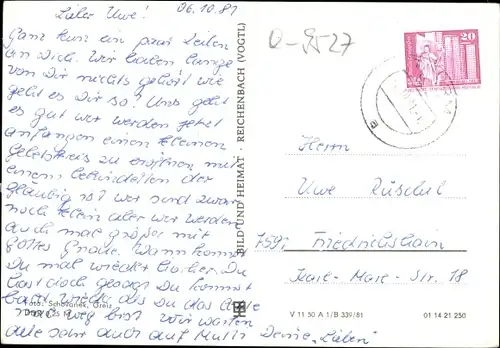 Lieber Uwe! 06.10.81
Ganz kurz ein paar Zeilen
an Dich. Wir haben lange
von Dir nichts gehört wie
geht es Dir so? Uns geht
es gut wir werden jetzt
anfangen einen kleinen
Gebetskreis zu mit
einem, der
gläubig ist wir sind zwar
noch klein aber wir werden
auch mal größer mit
Gottes Gnade. Wann kommst
Du mal wieder Du
hast doch gesagt Du kommst
wieder Du das
weg bist Wir warten
alle sehr auch auf Mutti Deine "Lieben"
Foto: Schovanek, Greiz
BILD UND HEIMAT · REICHENBACH (VOGTL)
V 11 50 A 1/B 339/81 01 14 21 250
D-9527
20
Herrn
Uwe Rüschel
Friedrichshain
Karl-Marx-Str. 18